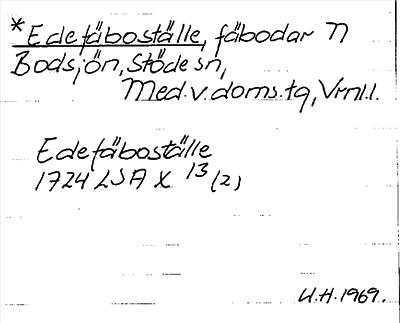 *Edefäboställe, fäbodar N
Bodsjön, Stöde sn,
Med.v.doms.tg, Vrnl.l.
Edefäboställe
1724 LSA X 13 (2)
U.H. 1969.